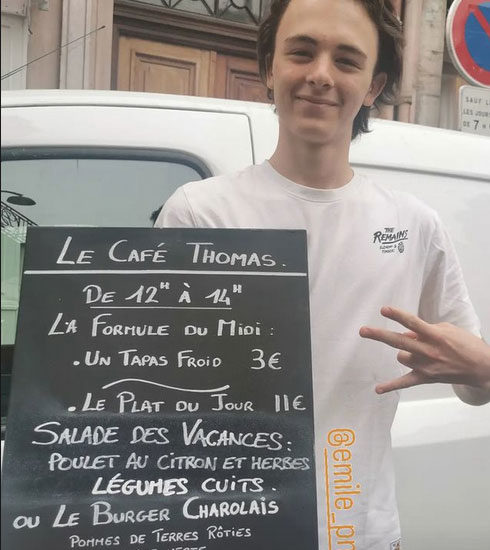 SAUF L
LES JOURS
DE 7 H
LE CAFÉ THOMAS.
DE 12H À 14H
LA FORMULE DU MIDI :
. UN TAPAS FROID 3€
. LE PLAT DU JOUR 11€
SALADE DES VACANCES :
POULET AU CITRON ET HERBES
LÉGUMES CUITS.
OU LE BURGER CHAROLAIS
POMMES DE TERRES RÔTIES
THE
REMAINS
@emile_pr